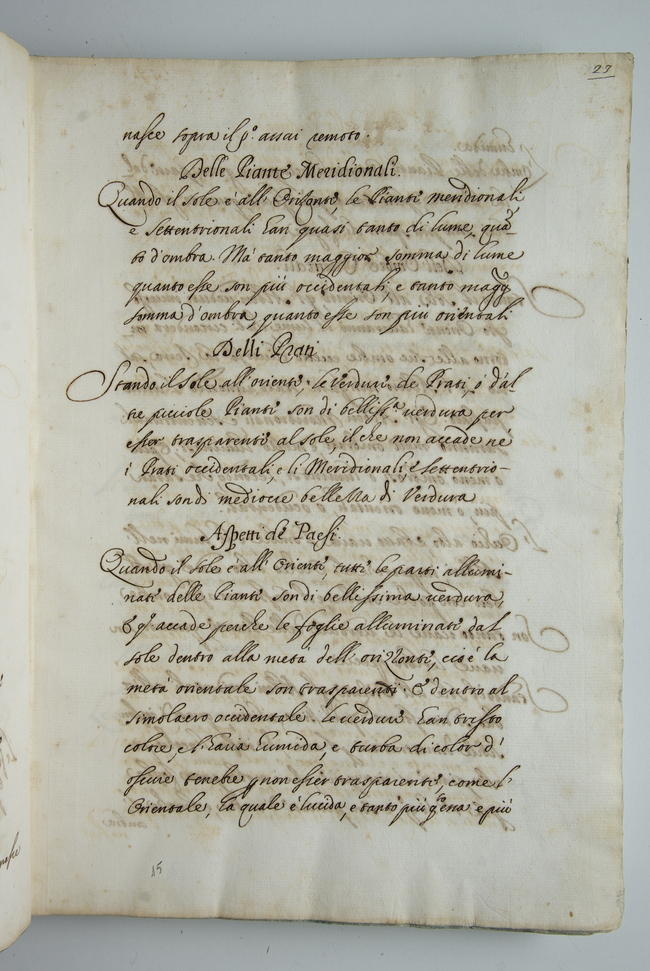 23
nasce sopra il p.º assai remoto.
Delle Piante Meridionali.
Quando il sole è all' Orisonte, le Piante meridionali
e settentrionali han quasi tanto di lume, quā-
to d'ombra. Mà tanto maggior somma di lume
quanto esse son più occidentali, e tanto magg.r
somma d'ombra, quanto esse son più orientali
Delli Prati
Stando il sole all'oriente, le verdure de Prati, ò d'al-
tre picciole Piante son di belliss.a verdura per
esser trasparenti al sole, il che non accade nè
i Prati occidentali, e li Meridionali, è settentrio-
nali son di mediocre bellezza di Verdura
Aspetti de' Paesi.
Quando il sole è all' Oriente, tutte le parti allumi-
nate delle Piante son di bellissima verdura,
& q.º accade perche le foglie alluminate dal
sole dentro alla metà dell' orizzonte, cioè la
metà orientale son trasparenti. & dentro al
simolacro occidentale. le verdure han tristo
colore, e l'haria humida, e turba di color d'
oscure tenebre p non esser trasparente, come l'
Orientale, la quale è lucida, e tanto più q.to essa e più
15